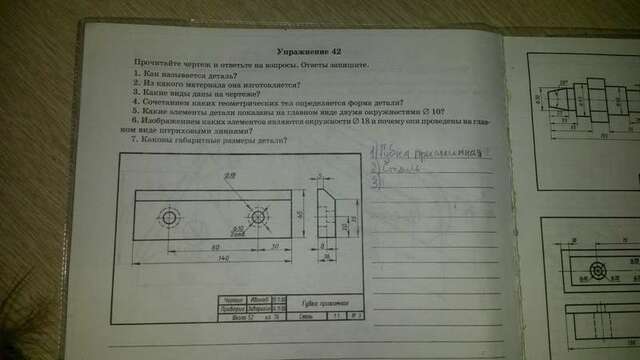 Упражнение 42
Прочитайте чертеж и ответьте на вопросы. Ответы запишите.
1. Как называется деталь?
2. Из какого материала она изготовляется?
3. Какие виды даны на чертеже?
4. Сочетанием каких геометрических тел определяется форма детали?
5. Какие элементы детали показаны на главном виде двумя окружностями ∅ 10?
6. Изображением каких элементов являются окружности ∅ 18 и почему они проведены на глав-
ном виде штриховыми линиями?
7. Каковы габаритные размеры детали?
1) Губка прижимная
2) Сталь
3)
∅18
5
45
35
20
∅10
2 отв.
60
30
8
16
140
Чертил Иванов
Проверил
Губка прижимная
Школа 52 кл 7б
Сталь 1:1 № 3